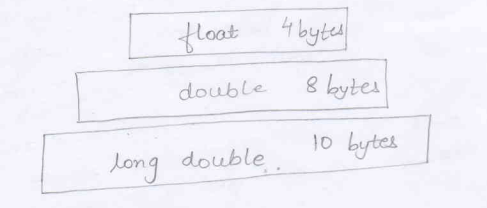 float 4 bytes
double 8 bytes
long double 10 bytes